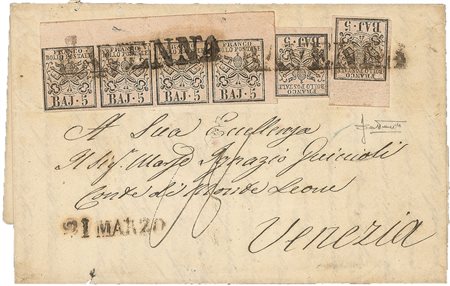 FRANCO BOLLO POSTALE FRANCO BOLLO POSTALE FRANCO BOLLO POSTALE FRANCO BOLLO POSTALE
BAJ·5 BAJ·5 BAJ·5 BAJ·5
FRANCO BOLLO POSTALE BAJ·5
FRANCO BOLLO POSTALE BAJ·5
A Sua Eccellenza
Il Sig. Ignazio Guiccioli
Conte di Monte Leone
Venezia
21 MARZO